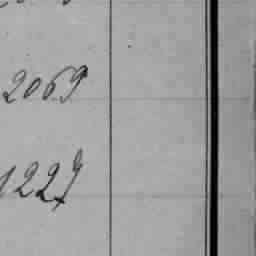 2069
1227